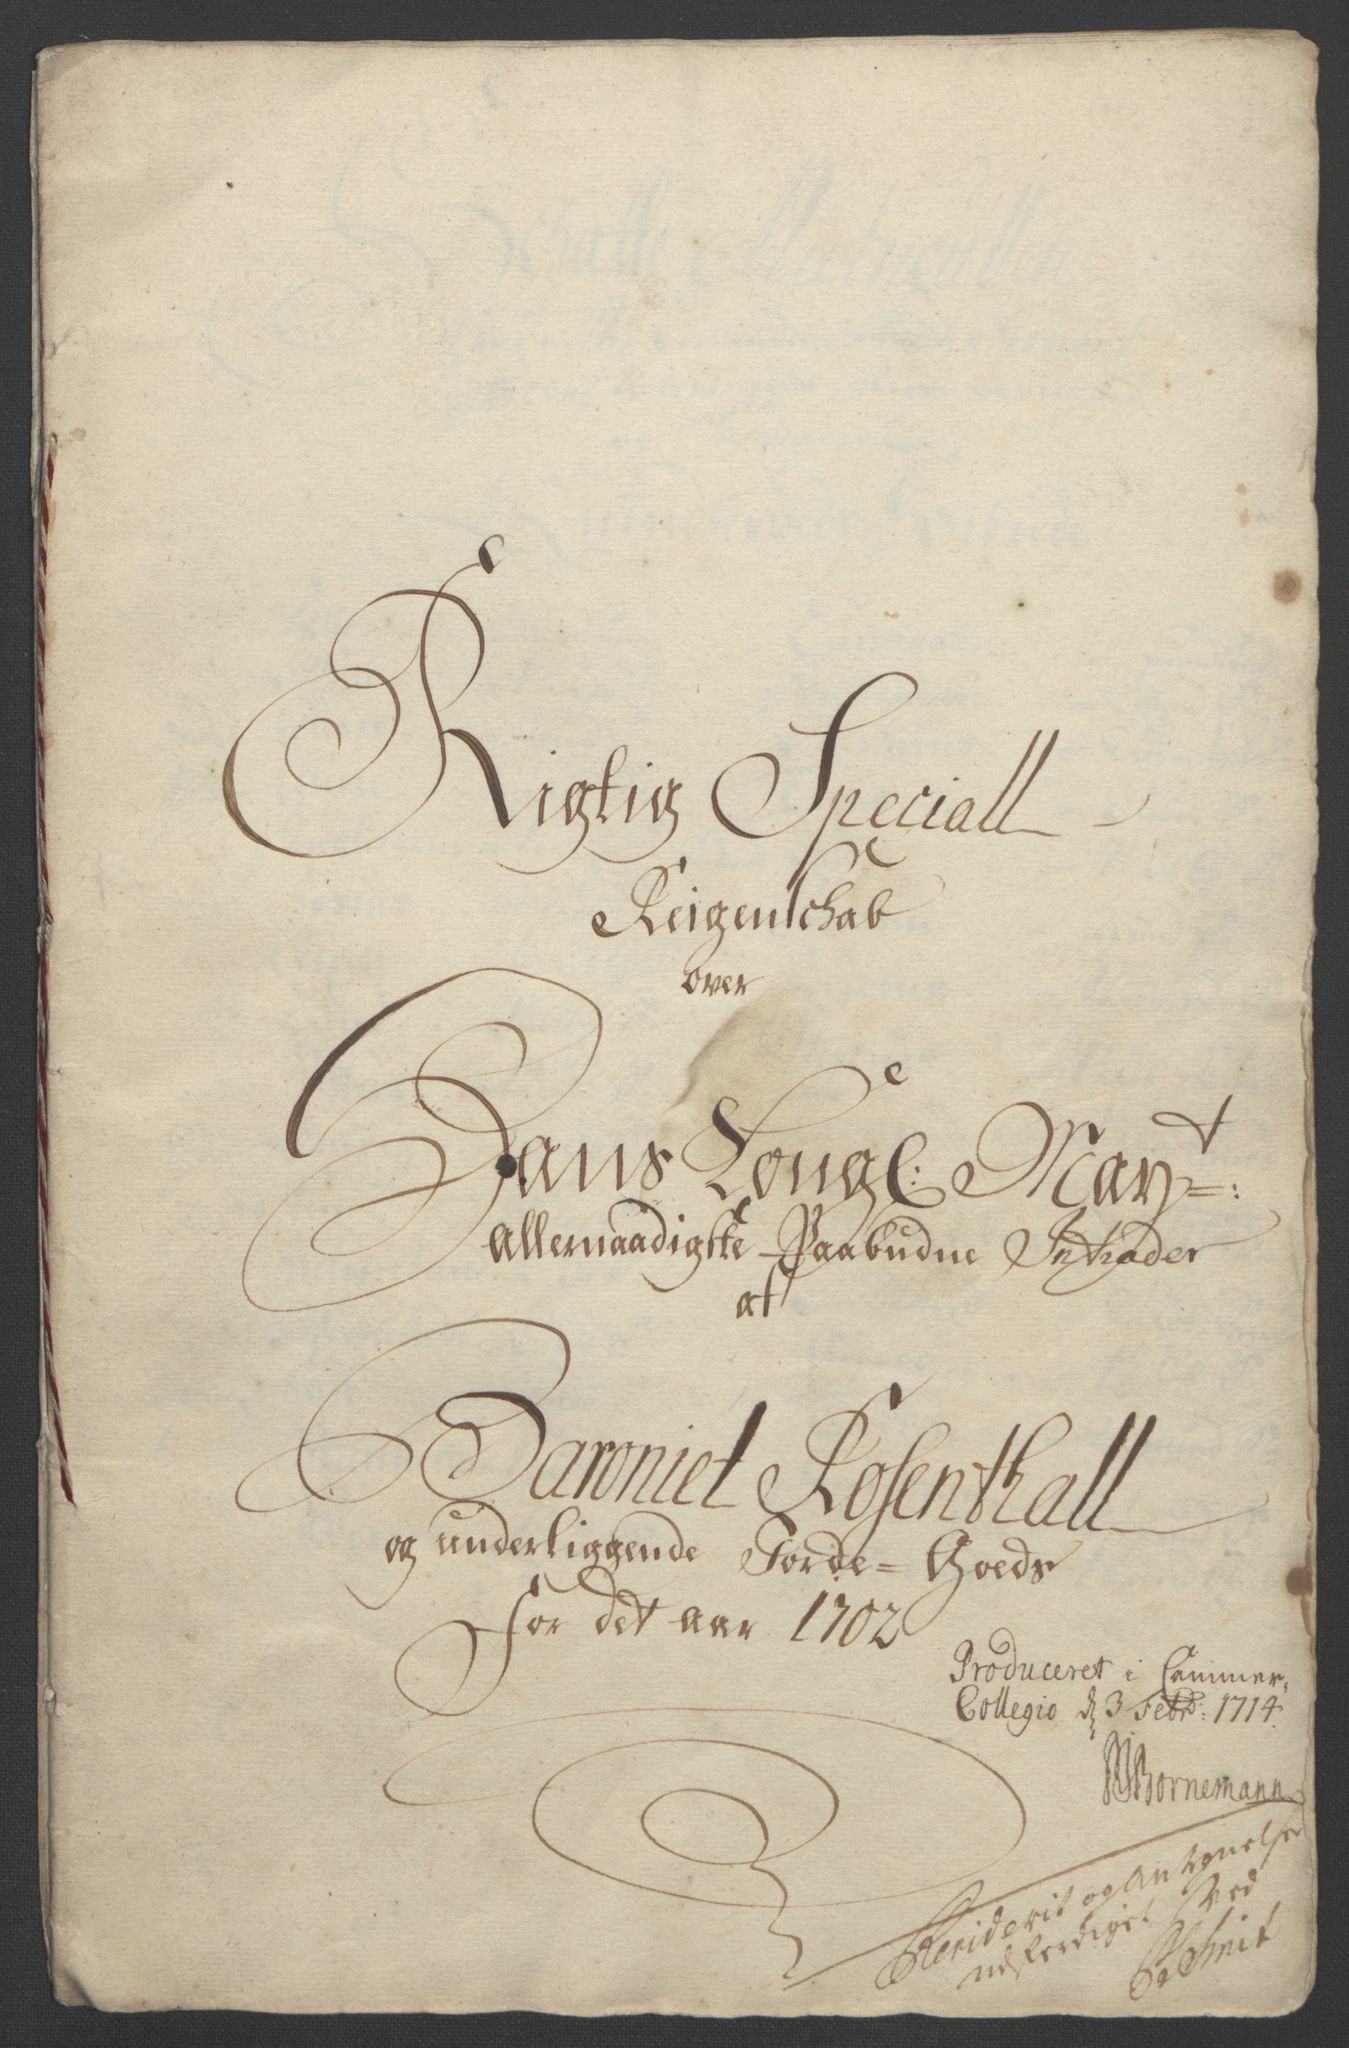 Rigtig Speciall
Reigenschab
over
Hans Kongl: May.t:
Allernaadigste Paabudne Intrader
af
Baroniet Rosenthall
og underliggende Jorde=Goeds
for det aar 1702
Produceret i Cammer-
Collegio d. 3 Febr: 1714.
Bornemann
Reviderit og Antegnelser
udferdiget Ved
Schmit